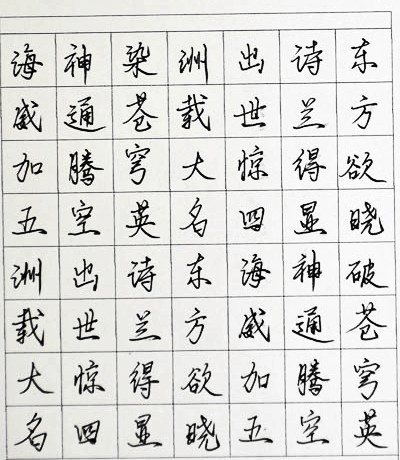 东方欲晓破苍穹英
诗兰得显神通腾空
出世惊四海威加五
洲載大名东方欲晓
染苍穹英诗兰得显
神通腾空出世惊四
海威加五洲載大名